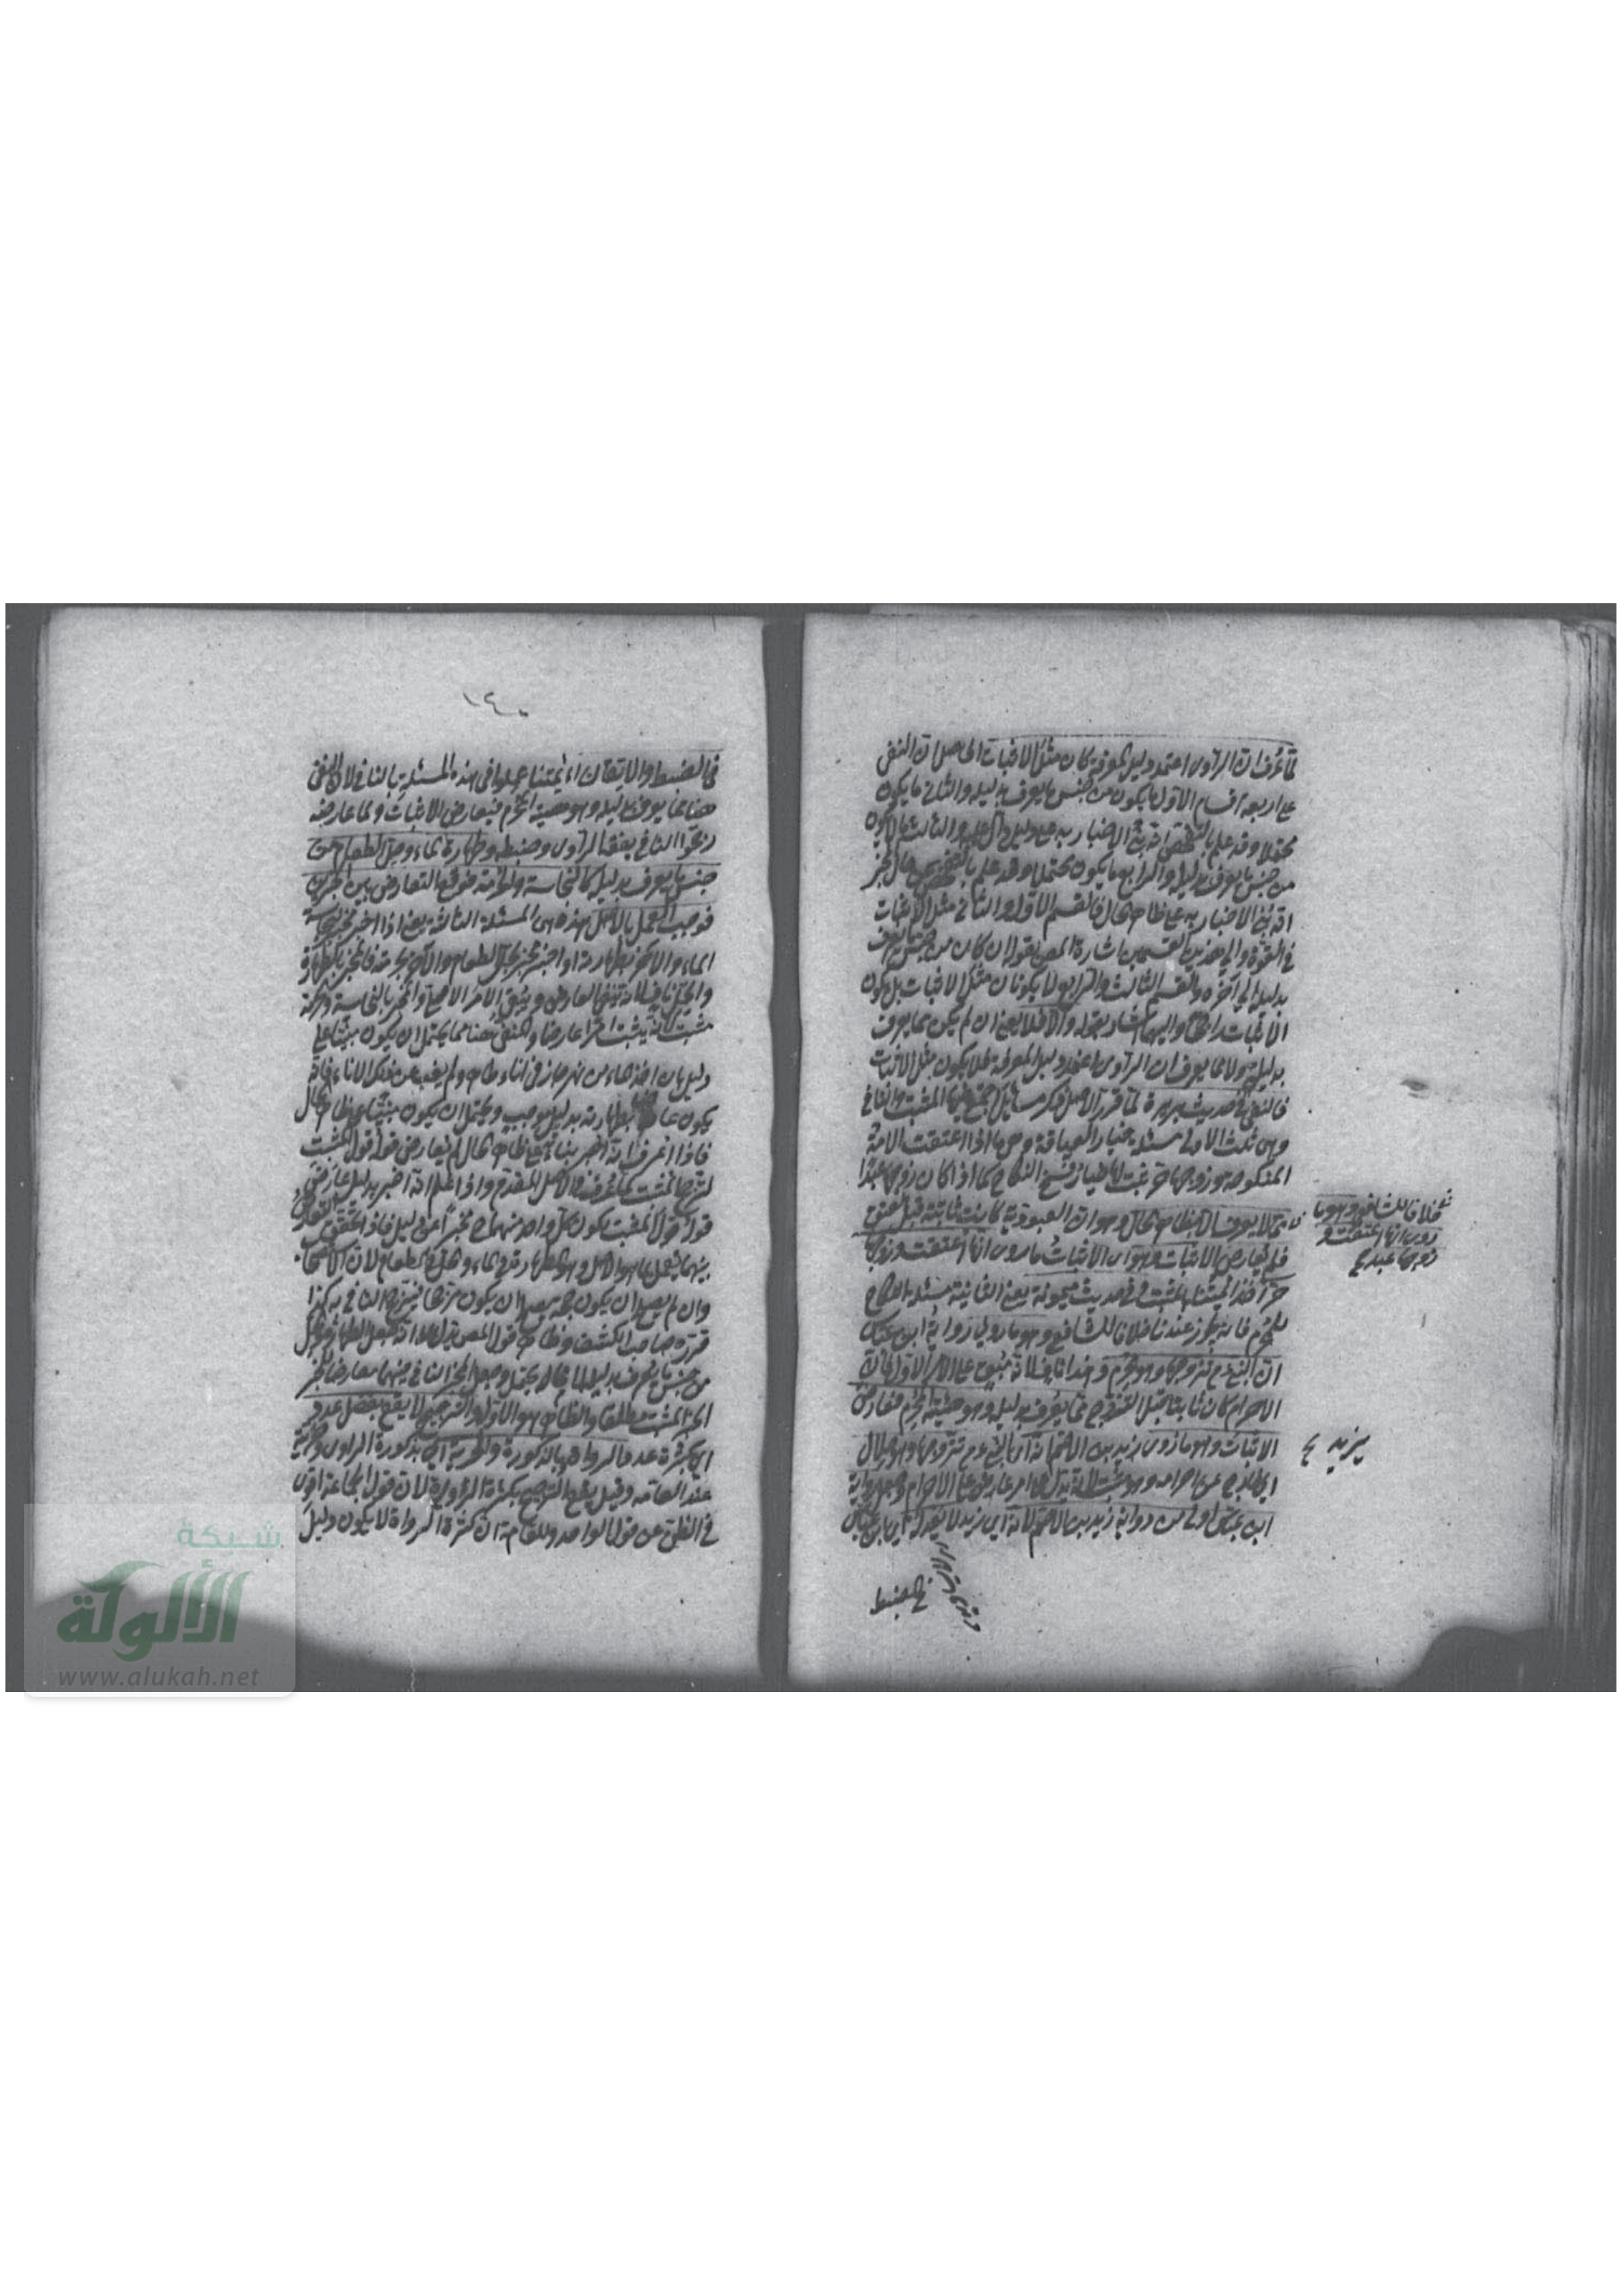 مما عرف ان الراوى اعتمد دليل المعرفة كان مثل الاثبات الحاصل ان النفى
على اربعة اقسام الاول ما يكون من جنس ما يعرف بدليله والثانى ما يكون
محتملا وقد علم بالتفحص انه بنى الاخبار به على دليل والثالث ما لا يكون
من جنس ما يعرف بدليله والرابع ما يكون محتملا وقد علم بالتفحص حال المخبر
انه بنى الاخبار به على ظاهر الحال فالقسم الاول والثانى مثل الاثبات
فى القوة والى هذين القسمين اشارة المص بقوله ان كان من جنس ما يعرف
بدليله الى آخره والقسم الثالث والرابع لا يكونان مثل الاثبات بل يكون
الاثبات راجحا واليهما اشار بقوله والا فلا يعنى ان لم يكن مما يعرف
بدليله ولا مما يعرف ان الراوى اعتمد دليل المعرفة فلا يكون مثل الاثبات
فالنفى فى حديث بريرة لما قرر الاصل ذكر مسائل اجتمع فيها المثبت والنافى
وهى ثلث الاولى مسئلة خيار العتاقة وهى ما اذا اعتقت الامة
المنكوحة وزوجها حر يثبت لها خيار فسخ النكاح كما اذا كان زوجها عبدا
مما لا يعرف الا بظاهر الحال وهو ان العبودية كانت ثابتة قبل العتق
فلم يعارض الاثبات وهو اى الاثبات ما روى انها اعتقت وزوجها
حر اخذ ائمتنا بالمثبت وفى حديث ميمونة يعنى الثانية مسئلة نكاح
المحرم فانه يجوز عندنا خلافا للشافعى وهو ما روى رواية ابن عباس
ان النبى ع م تزوجها وهو محرم وهذا ناف لانه مبق على الامر الاول لان
الاحرام كان ثابتا قبل التزوج مما يعرف بدليله وهو هيئة المحرم فعارض
الاثبات وهو ما روى زيد بن الاصم انه اى النبى ع م تزوجها وهو حلال
اى خارج عن احرامه وهو مثبت لانه يدل على امر عارض على الاحرام وجعل رواية
ابن عباس اولى من رواية زيد بن الاصم لانه اى زيد لا يعدله اى ابن عباس
فى الضبط
خلافا للشافعى وهو ما
روى انها اعتقت و
زوجها عبد
يزيد
١٤٠
فى الضبط والاتقان ائمتنا عملوا فى هذه المسئلة بالنافى لان النفى
هنا مما يعرف بدليله وهو هيئة المحرم فيعارض الاثبات ولما عارضه
رجحوا النافى بفقه الراوى وضبطه وطهارة الماء وحل الطعام من
جنس ما يعرف بدليله كالنجاسة والحرمة فوقع التعارض بين الخبرين
فوجب العمل بالاصل هذه هى المسئلة الثالثة يعنى اذا اخبر مخبر بنجاسة
الماء والآخر بطهارته او اخبر مخبر بحل الطعام والآخر بحرمته فالمخبر بالطهارة
والحل ناف لانه ينفى العارض ويبقى الامر الاصلى والمخبر بالنجاسة والحرمة
مثبت لانه يثبت امرا عارضا والنفى هنا مما يحتمل ان يكون مبنيا على
دليل بان اخذ الماء من نهر جار فى اناء طاهر ولم يغب عن ذلك الاناء فانه
يكون عارفا بطهارته بدليل موجب ويحتمل ان يكون مبنيا على ظاهر الحال
فاذا عرف انه اخبر بناء على ظاهر الحال لم يعارض قوله قول المثبت
لترجح المثبت كما عرف فى الاصل المقدم واذا علم انه اخبر بدليل عارض
قوله قول المثبت لكون كل واحد منهما مخبرا عن دليل فاذا تحقق التعارض
بينهما يعمل بما هو الاصل وهو الطهارة فى الماء والحل فى الطعام لان الاستصحاب
وان لم يصلح ان يكون حجة يصلح ان يكون مرجحا فيترجح النافى به هكذا
قرره صاحب الكشف وظاهر قول المص يدل على انه جعل الطهارة والحل
من جنس ما يعرف بدليله لا مما لا يحتمل وجعل الخبر النافى فيهما معارضا
الخبر المثبت مطلقا والظاهر هو الاول والترجيح لا يقع بفضل عدد
اى بكثرة عدد الرواة وبالذكورة والحرية اى بذكورة الراوى وحريته
عند العامة وقيل يقع الترجيح بكثرة الرواة لان قول الجماعة اقوى
فى الظن من قول الواحد وللعامة ان كثرة الرواة لا يكون دليل
شبكة
الألوكة
www.alukah.net